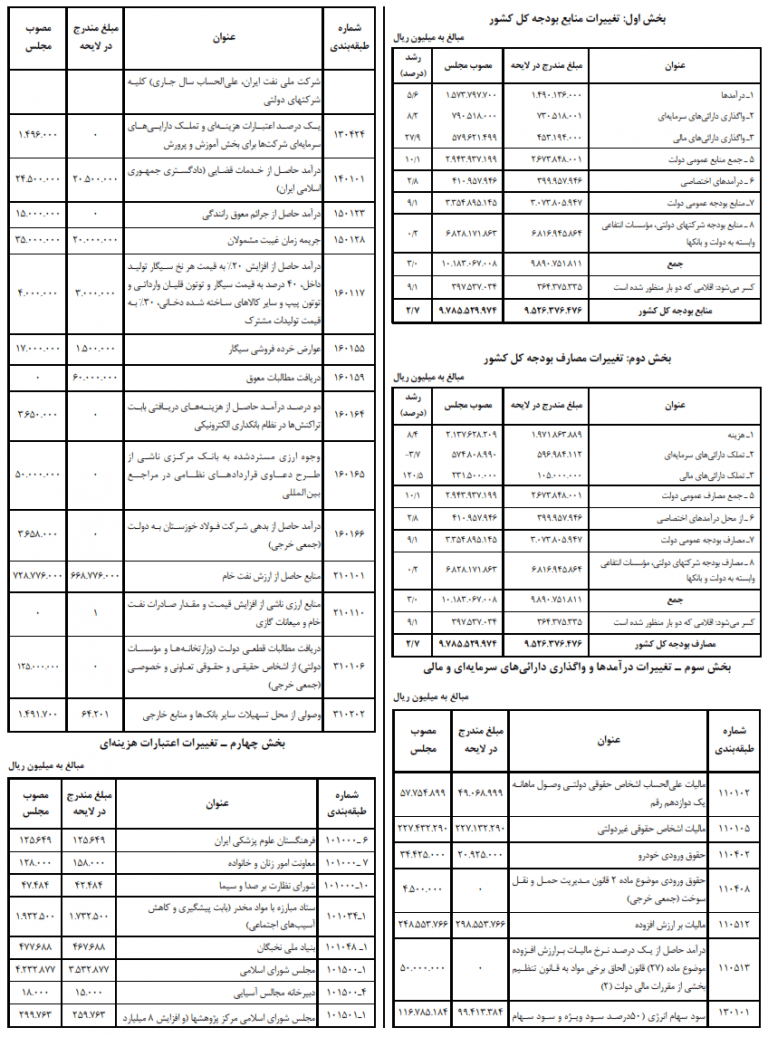 بخش اول: تغییرات منابع بودجه کل کشور
مبالغ به میلیون ریال
عنوان مبلغ مندرج در لایحه مصوب مجلس رشد (درصد)
۱ـ درآمدها ۱.۴۹۰.۱۳۶.۰۰۰ ۱.۵۷۳.۷۹۷.۷۰۰ ۵/۶
۲ـ واگذاری دارائی‌های سرمایه‌ای ۷۳۰.۵۱۸.۰۰۱ ۷۹۰.۵۱۸.۰۰۰ ۸/۲
۳ـ واگذاری دارائی‌های مالی ۴۵۳.۱۹۴.۰۰۰ ۵۷۹.۶۲۱.۴۹۹ ۲۷/۹
۵ – جمع منابع عمومی دولت ۲.۶۷۳.۸۴۸.۰۰۱ ۲.۹۴۳.۹۳۷.۱۹۹ ۱۰/۱
۶ – درآمدهای اختصاصی ۳۹۹.۹۵۷.۹۴۶ ۴۱۰.۹۵۷.۹۴۶ ۲/۸
۷ـ منابع بودجه عمومی دولت ۳.۰۷۳.۸۰۵.۹۴۷ ۳.۳۵۴.۸۹۵.۱۴۵ ۹/۱
۸ – منابع بودجه شرکتهای دولتی، مؤسسات انتفاعی
وابسته به دولت و بانکها ۶.۸۱۶.۹۴۵.۸۶۴ ۶.۸۲۸.۱۷۱.۸۶۳ ۰/۲
جمع ۹.۸۹۰.۷۵۱.۸۱۱ ۱۰.۱۸۳.۰۶۷.۰۰۸ ۳/۰
کسر می‌شود: اقلامی که دو بار منظور شده است ۳۶۴.۳۷۵.۳۳۵ ۳۹۷.۵۳۷.۰۳۴ ۹/۱
منابع بودجه کل کشور ۹.۵۲۶.۳۷۶.۴۷۶ ۹.۷۸۵.۵۲۹.۹۷۴ ۲/۷
بخش دوم: تغییرات مصارف بودجه کل کشور
مبالغ به میلیون ریال
عنوان مبلغ مندرج در لایحه مصوب مجلس رشد (درصد)
۱ـ هزینه ۱.۹۷۱.۸۶۳.۸۸۹ ۲.۱۳۷.۶۲۸.۲۰۹ ۸/۴
۲ـ تملک دارائی‌های سرمایه‌ای ۵۹۶.۹۸۴.۱۱۲ ۵۷۴.۸۰۸.۹۹۰ -۳/۷
۳ـ تملک دارائی‌های مالی ۱۰۵.۰۰۰.۰۰۰ ۲۳۱.۵۰۰.۰۰۰ ۱۲۰/۵
۵ – جمع مصارف عمومی دولت ۲.۶۷۳.۸۴۸.۰۰۱ ۲.۹۴۳.۹۳۷.۱۹۹ ۱۰/۱
۶ – از محل درآمدهای اختصاصی ۳۹۹.۹۵۷.۹۴۶ ۴۱۰.۹۵۷.۹۴۶ ۲/۸
۷ـ مصارف بودجه عمومی دولت ۳.۰۷۳.۸۰۵.۹۴۷ ۳.۳۵۴.۸۹۵.۱۴۵ ۹/۱
۸ – مصارف بودجه شرکتهای دولتی، مؤسسات انتفاعی
وابسته به دولت و بانکها ۶.۸۱۶.۹۴۵.۸۶۴ ۶.۸۲۸.۱۷۱.۸۶۳ ۰/۲
جمع ۹.۸۹۰.۷۵۱.۸۱۱ ۱۰.۱۸۳.۰۶۷.۰۰۸ ۳/۰
کسر می‌شود: اقلامی که دو بار منظور شده است ۳۶۴.۳۷۵.۳۳۵ ۳۹۷.۵۳۷.۰۳۴ ۹/۱
مصارف بودجه کل کشور ۹.۵۲۶.۳۷۶.۴۷۶ ۹.۷۸۵.۵۲۹.۹۷۴ ۲/۷
بخش سوم ـ تغییرات درآمدها و واگذاری دارائی‌های سرمایه‌ای و مالی
مبالغ به میلیون ریال
شماره طبقه‌بندی عنوان مبلغ مندرج در لایحه مصوب مجلس
۱۱۰۱۰۲ مالیات علی‌الحساب اشخاص حقوقی دولتی وصول ماهانه
یک دوازدهم رقم ۴۹.۰۶۸.۹۹۹ ۵۷.۷۵۴.۸۹۹
۱۱۰۱۰۵ مالیات اشخاص حقوقی غیردولتی ۲۲۷.۱۳۲.۲۹۰ ۲۲۷.۴۳۲.۲۹۰
۱۱۰۴۰۲ حقوق ورودی خودرو ۲۰.۹۲۵.۰۰۰ ۳۴.۴۲۵.۰۰۰
۱۱۰۴۰۸ حقوق ورودی موضوع ماده ۲ قانون مدیریت حمل و نقل
سوخت (جمعی خرجی) ۰ ۴.۵۰۰.۰۰۰
۱۱۰۵۱۲ مالیات بر ارزش افزوده ۲۹۸.۵۵۳.۷۶۶ ۲۴۸.۵۵۳.۷۶۶
۱۱۰۵۱۳ درآمد حاصل از یک درصد نرخ مالیات برارزش افزوده
موضوع ماده (۳۷) قانون الحاق برخی مواد به قانون تنظیم
بخشی از مقررات مالی دولت (۲) ۰ ۵۰.۰۰۰.۰۰۰
۱۳۰۱۰۱ سود سهام انرژی (۵۰درصد سود ویژه و سود سهام ۹۹.۴۱۳.۳۸۴ ۱۱۶.۷۸۵.۱۸۴
شماره طبقه‌بندی عنوان مبلغ مندرج در لایحه مصوب مجلس
شرکت ملی نفت ایران، علی‌الحساب سال جاری) کلیه
شرکتهای دولتی
۱۳۰۴۲۴ یک درصد اعتبارات هزینه‌ای و تملک دارایی‌های
سرمایه‌ای شرکت‌ها برای بخش آموزش و پرورش ۰ ۱.۴۹۶.۰۰۰
۱۴۰۱۰۱ درآمد حاصل از خدمات قضایی (دادگستری جمهوری
اسلامی ایران) ۲۰.۵۰۰.۰۰۰ ۲۴.۵۰۰.۰۰۰
۱۵۰۱۲۳ درآمد حاصل از جرائم معوق رانندگی ۰ ۱۵.۰۰۰.۰۰۰
۱۵۰۱۲۸ جریمه زمان غیبت مشمولان ۲۰.۰۰۰.۰۰۰ ۳۵.۰۰۰.۰۰۰
۱۶۰۱۱۷ درآمد حاصل از افزایش ۲۰٪ به قیمت هر نخ سیگار تولید
داخل، ۴۰ درصد به قیمت سیگار و توتون قلیان وارداتی و
توتون پیپ و سایر کالاهای ساخته شده دخانی، ۳۰٪ به
قیمت تولیدات مشترک ۳.۰۰۰.۰۰۰ ۴.۰۰۰.۰۰۰
۱۶۰۱۵۵ عوارض خرده فروشی سیگار ۱.۵۰۰.۰۰۰ ۱۷.۰۰۰.۰۰۰
۱۶۰۱۵۹ دریافت مطالبات معوق ۶۰.۰۰۰.۰۰۰ ۰
۱۶۰۱۶۴ دو درصد درآمد حاصل از هزینه‌های دریافتی بابت
تراکنش‌ها در نظام بانکداری الکترونیکی ۰ ۳.۶۵۰.۰۰۰
۱۶۰۱۶۵ وجوه ارزی مستردشده به بانک مرکزی ناشی از
طرح دعاوی قراردادهای نظامی در مراجع
بین‌المللی ۰ ۵۰.۰۰۰.۰۰۰
۱۶۰۱۶۶ درآمد حاصل از بدهی شرکت فولاد خوزستان به دولت
(جمعی خرجی) ۰ ۳.۶۵۸.۰۰۰
۲۱۰۱۰۱ منابع حاصل از ارزش نفت خام ۶۶۸.۷۷۶.۰۰۰ ۷۲۸.۷۷۶.۰۰۰
۲۱۰۱۱۰ منابع ارزی ناشی از افزایش قیمت و مقدار صادرات نفت
خام و میعانات گازی ۱ ۰
۳۱۰۱۰۶ دریافت مطالبات قطعی دولت (وزارتخانه‌ها و مؤسسات
دولتی) از اشخاص حقیقی و حقوقی تعاونی و خصوصی
(جمعی خرجی) ۰ ۱۲۵.۰۰۰.۰۰۰
۳۱۰۲۰۲ وصولی از محل تسهیلات سایر بانک‌ها و منابع خارجی ۶۴.۲۰۱ ۱.۴۹۱.۷۰۰
بخش چهارم ـ تغییرات اعتبارات هزینه‌ای
مبالغ به میلیون ریال
شماره طبقه‌بندی عنوان مبلغ مندرج در لایحه مصوب مجلس
۱۰۱۰۰۰ـ۶ فرهنگستان علوم پزشکی ایران ۱۲۵.۶۴۹ ۱۲۵.۶۴۹
۱۰۱۰۰۰ـ۷ معاونت امور زنان و خانواده ۱۵۸.۰۰۰ ۱۲۸.۰۰۰
۱۰۱۰۰۰ـ۱۰ شورای نظارت بر صدا و سیما ۴۲.۴۸۴ ۴۷.۴۸۴
۱۰۱۰۳۴ـ۱ ستاد مبارزه با مواد مخدر (بابت پیشگیری و کاهش
آسیب‌های اجتماعی) ۱.۷۳۲.۵۰۰ ۱.۹۳۲.۵۰۰
۱۰۱۰۴۸ـ۱ بنیاد ملی نخبگان ۴۶۷.۶۸۸ ۴۷۷.۶۸۸
۱۰۱۵۰۰ـ۱ مجلس شورای اسلامی ۳.۵۳۲.۸۷۷ ۴.۲۳۲.۸۷۷
۱۰۱۵۰۰ـ۴ دبیرخانه مجالس آسیایی ۱۵.۰۰۰ ۱۸.۰۰۰
۱۰۱۵۰۱ـ۱ مجلس شورای اسلامی مرکز پژوهشها (و افزایش ۸ میلیارد ۲۵۹.۷۶۳ ۲۹۹.۷۶۳